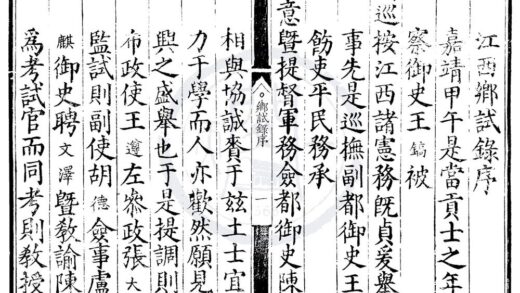 江西鄉試錄序
嘉靖甲午是當貢士之年
察御史王鎬被
巡按江西諸憲務旣貞爰舉
事先是巡撫副都御史王
飭吏平民務承
意曁提督軍務僉都御史陳
鄉試錄序 一
相與協誠賚于玆土士宜
力于學而人亦歡然願見
興之盛舉也于是提調則
布政使王遵左叅政張大
監試則副使胡德僉事盧
麒御史聘文澤曁敎諭陳
為考試官而同考則敎授